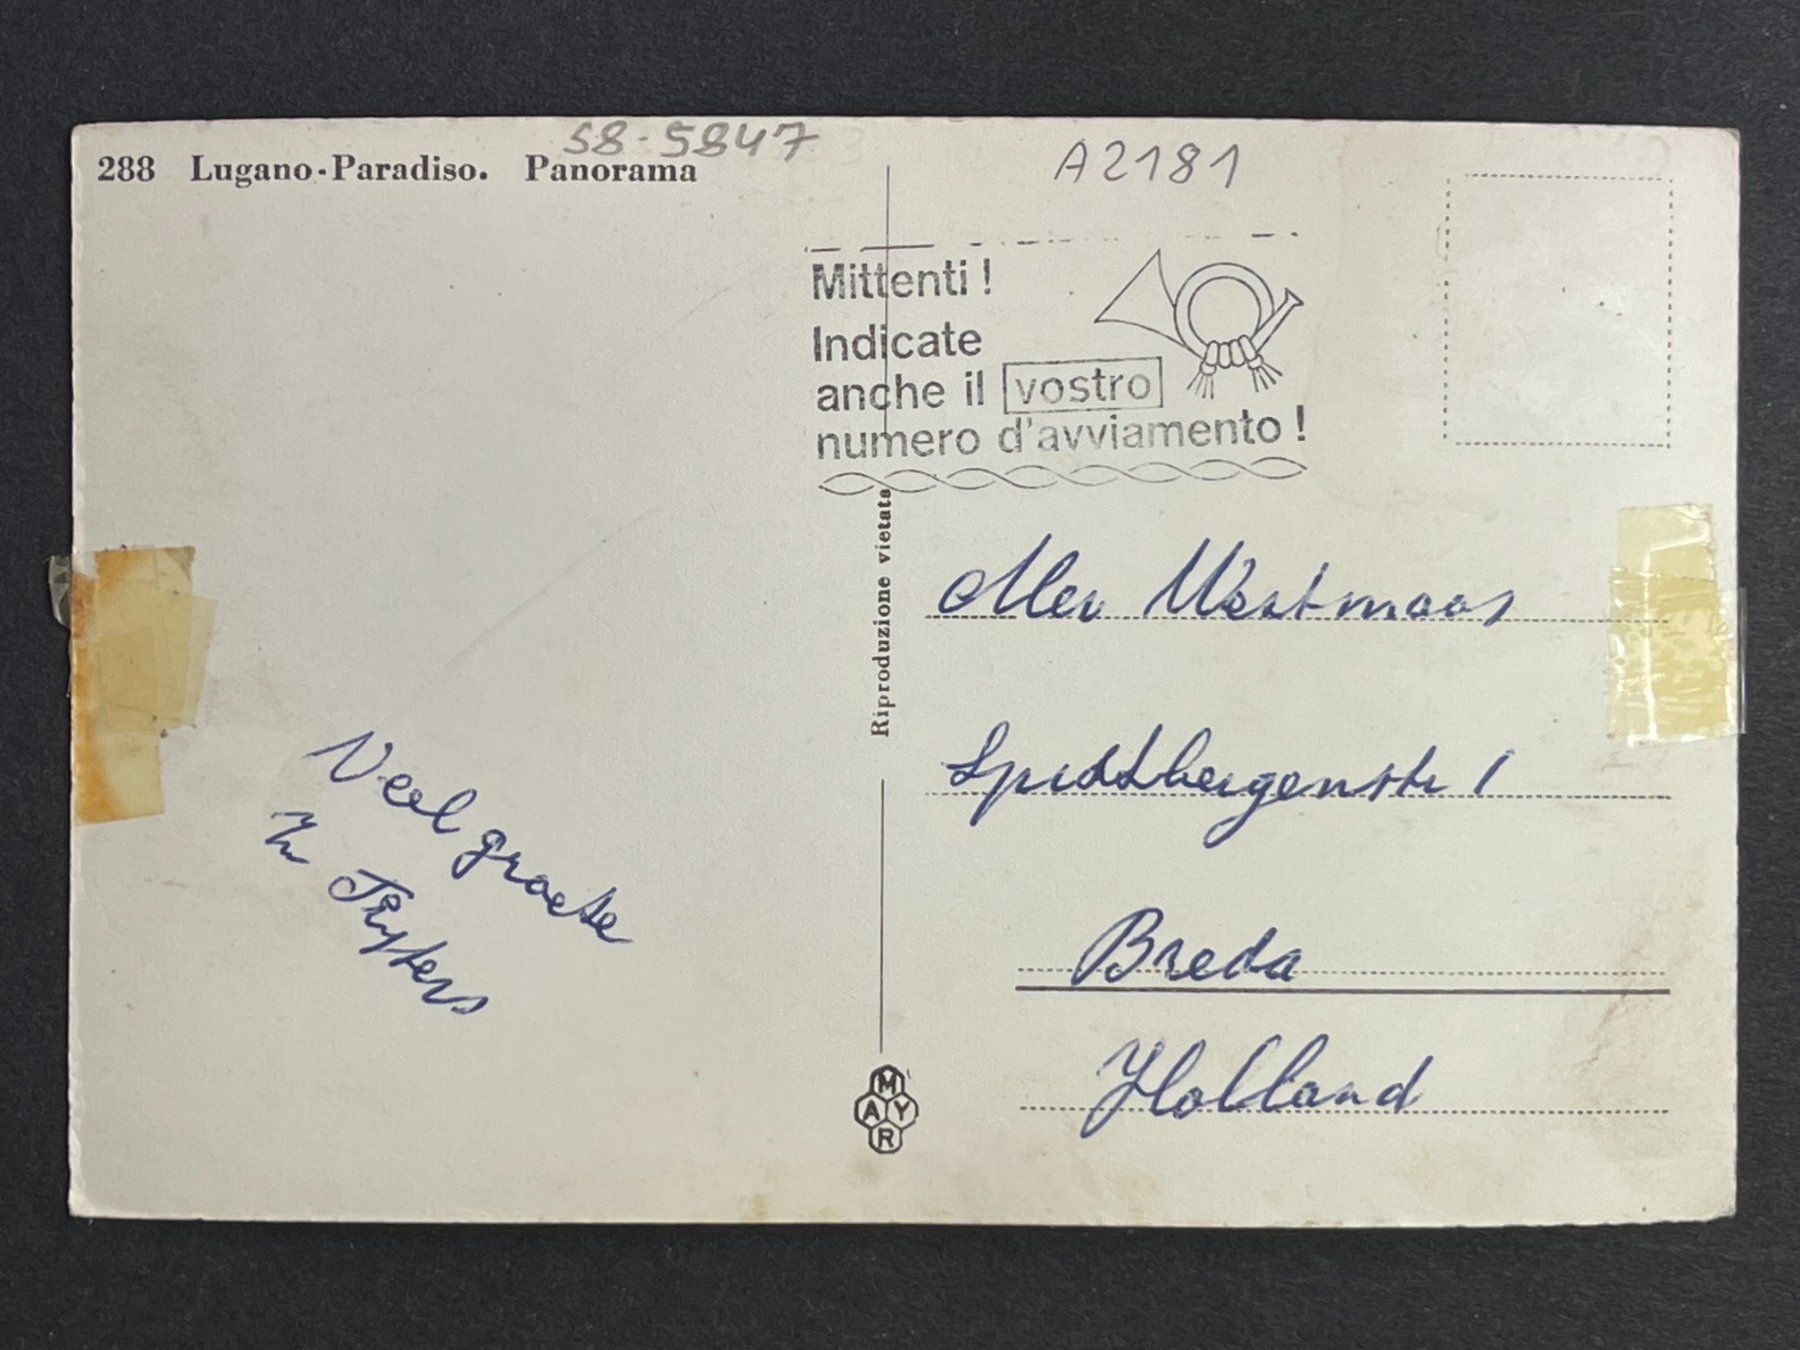 58-5847
288 Lugano-Paradiso. Panorama
A2181
Mittenti !
Indicate
anche il vostro
numero d'avviamento !
Riproduzione vietata
Mev Westmaas
Spitsbergenstr 1
Breda
Holland
Veel groete
MAYR